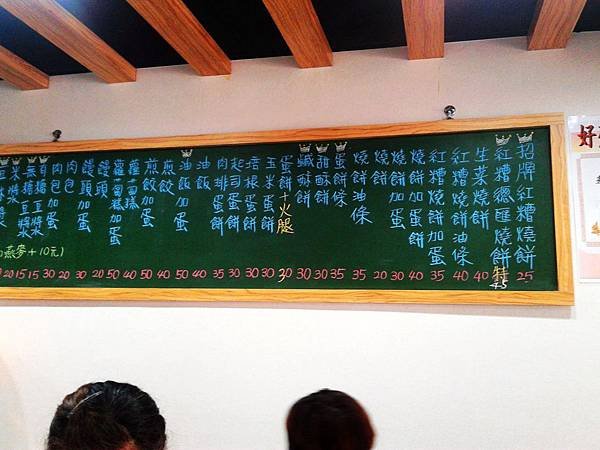 招牌紅糟燒餅 25
紅糟德匯燒餅 特45
生菜燒餅 40
紅糟燒餅油條 40
紅糟燒餅加蛋 35
燒餅加蛋餅 40
燒餅加蛋 30
燒餅 20
燒餅油條 35
蛋餅條 35
甜酥餅 30
鹹酥餅 30
蛋餅+火腿 30
玉米蛋餅 30
培根蛋餅 30
起司蛋餅 30
肉排蛋餅 35
油飯 40
油飯加蛋 50
煎餃 40
煎餃加蛋 50
蘿蔔糕 40
蘿蔔糕加蛋 50
饅頭 20
饅頭加蛋 30
肉包 20
肉包加蛋 30
有糖豆漿 15
無糖豆漿 15
米漿 20
燕麥+10元)
好